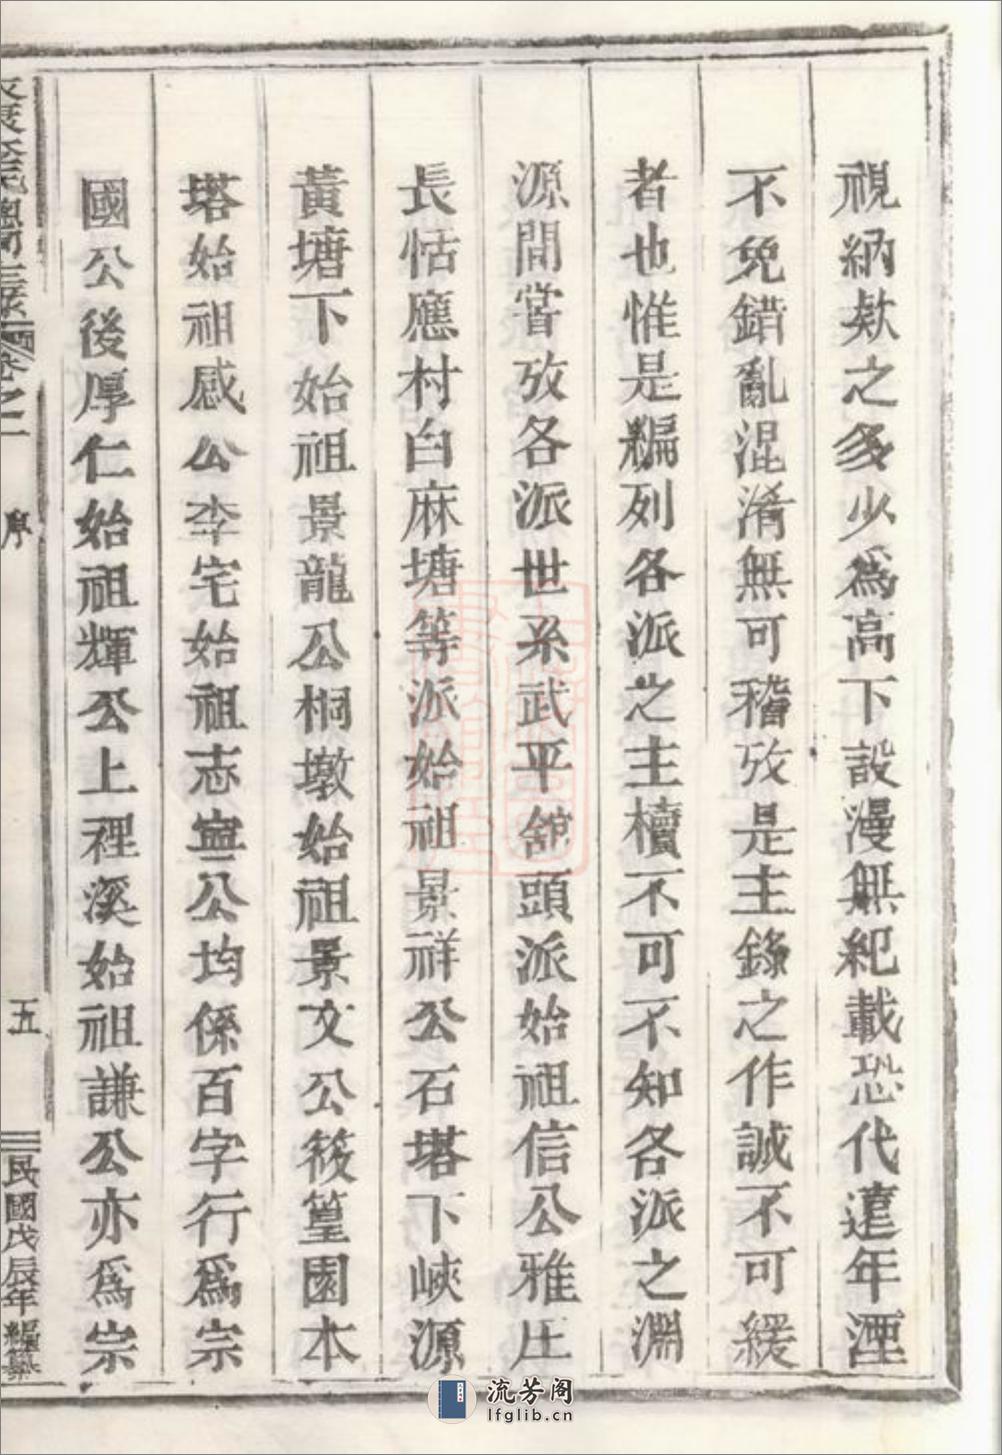 視納欵之多少爲高下設漫無紀載恐代遠年湮
不免錯亂混淆無可稽攷是主錄之作誠不可緩
者也惟是編列各派之主櫝不可不知各派之淵
源間嘗攷各派世系武平舘頭派始祖信公雅庄
長恬應村白麻塘等派始祖景祥公石塔下峽源
黃塘下始祖景龍公桐墩始祖景文公筱篁園本
塔始祖感公李宅始祖志寧公均係百字行爲宗
國公後厚仁始祖輝公上裡溪始祖謙公亦爲宗
卷之一 序 五 民國戊辰年編纂
流芳阁
lfglib.cn